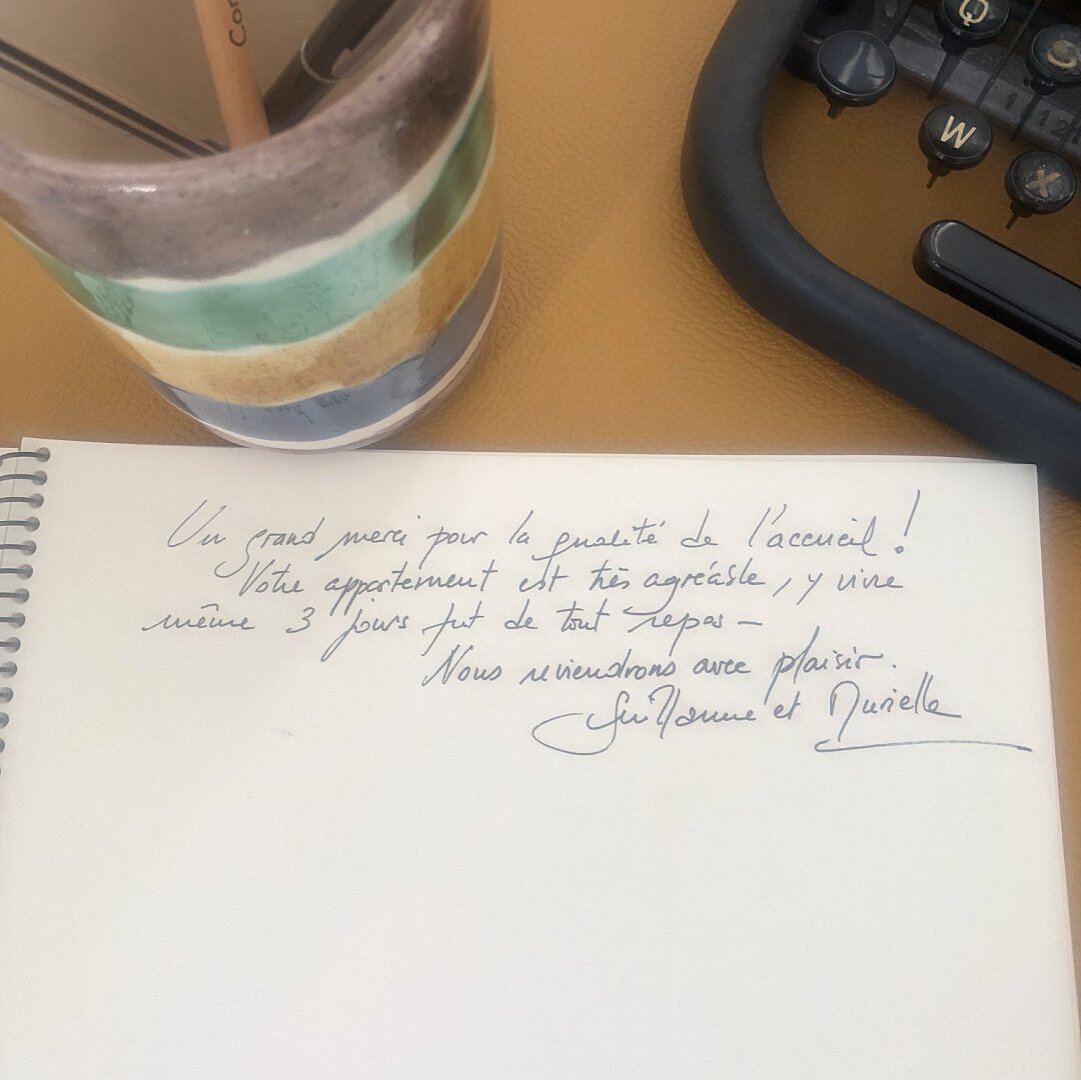 Cor
Q
S
W
X
Un grand merci pour la qualité de l'accueil !
Votre appartement est très agréable, y vivre
même 3 jours fut de tout repos –
Nous reviendrons avec plaisir.
Guillaume et Murielle